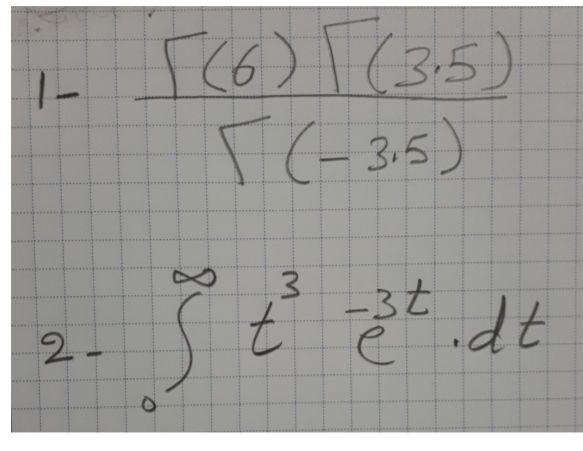 1- Γ(6) Γ(3.5)
Γ(-3.5)
2- ∫₀^∞ t³ e^-3t .dt